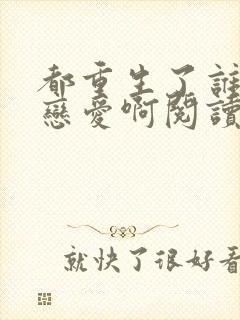 都重生了誰
戀愛啊閱讀
就快了很好看